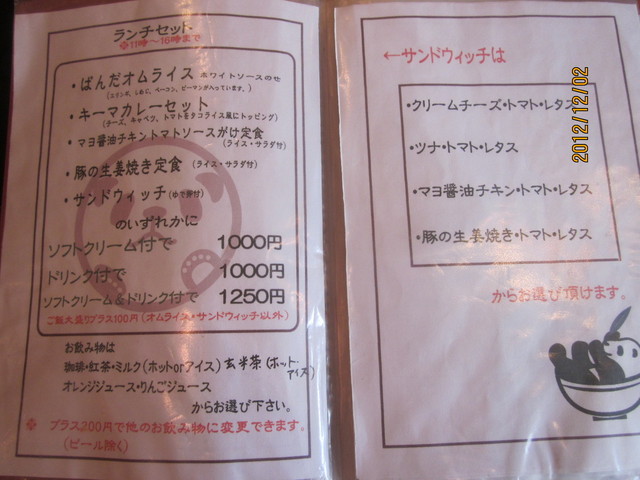 ランチセット
※11時～16時まで
・ぱんだオムライス ホワイトソースのせ
(エリンギ、しめじ、ベーコン、ピーマンが入っています。)
・キーマカレーセット
(チーズ、キャベツ、トマトをタコライス風にトッピング)
・マヨ醤油チキントマトソースがけ定食
(ライス・サラダ付)
・豚の生姜焼き定食 (ライス・サラダ付)
・サンドウィッチ(ゆで卵付)
のいずれかに
ソフトクリーム付で 1000円
ドリンク付で 1000円
ソフトクリーム&ドリンク付で 1250円
ご飯大盛りプラス100円(オムライス・サンドウィッチ以外)
お飲み物は
珈琲・紅茶・ミルク(ホットorアイス)玄米茶(ホット・
アイス)
オレンジジュース・りんごジュース
からお選び下さい。
※ プラス200円で他のお飲み物に変更できます。
(ビール除く)
←サンドウィッチは
・クリームチーズ・トマト・レタス
・ツナ・トマト・レタス
・マヨ醤油チキン・トマト・レタス
・豚の生姜焼き・トマト・レタス
からお選び頂けます。
2012/12/02